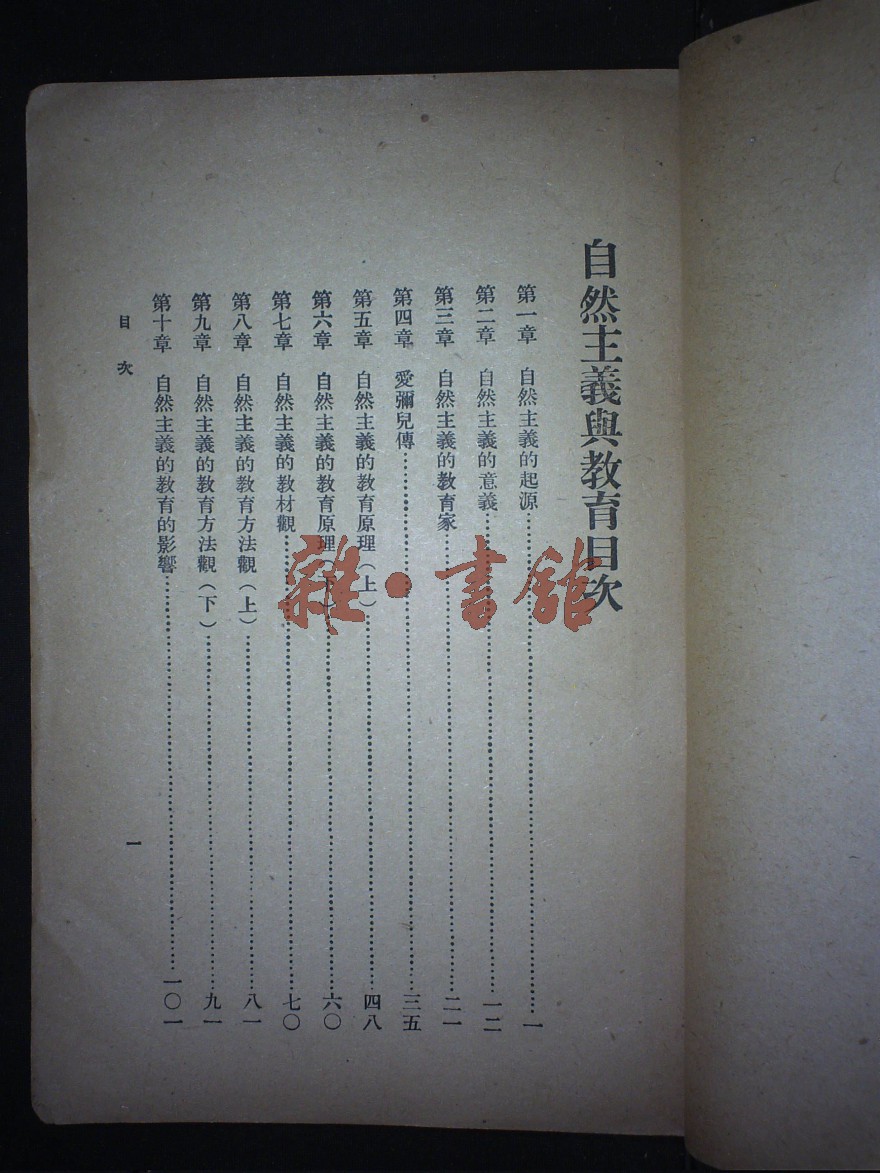 自然主義與教育目次
第一章 自然主義的起源……一
第二章 自然主義的意義……一二
第三章 自然主義的教育家……二一
第四章 愛彌兒傳……三五
第五章 自然主義的教育原理(上)……四八
第六章 自然主義的教育原理(下)……六〇
第七章 自然主義的教材觀……七〇
第八章 自然主義的教育方法觀(上)……八一
第九章 自然主義的教育方法觀(下)……九一
第十章 自然主義的教育的影響……一〇一
目次
一
雜·書館